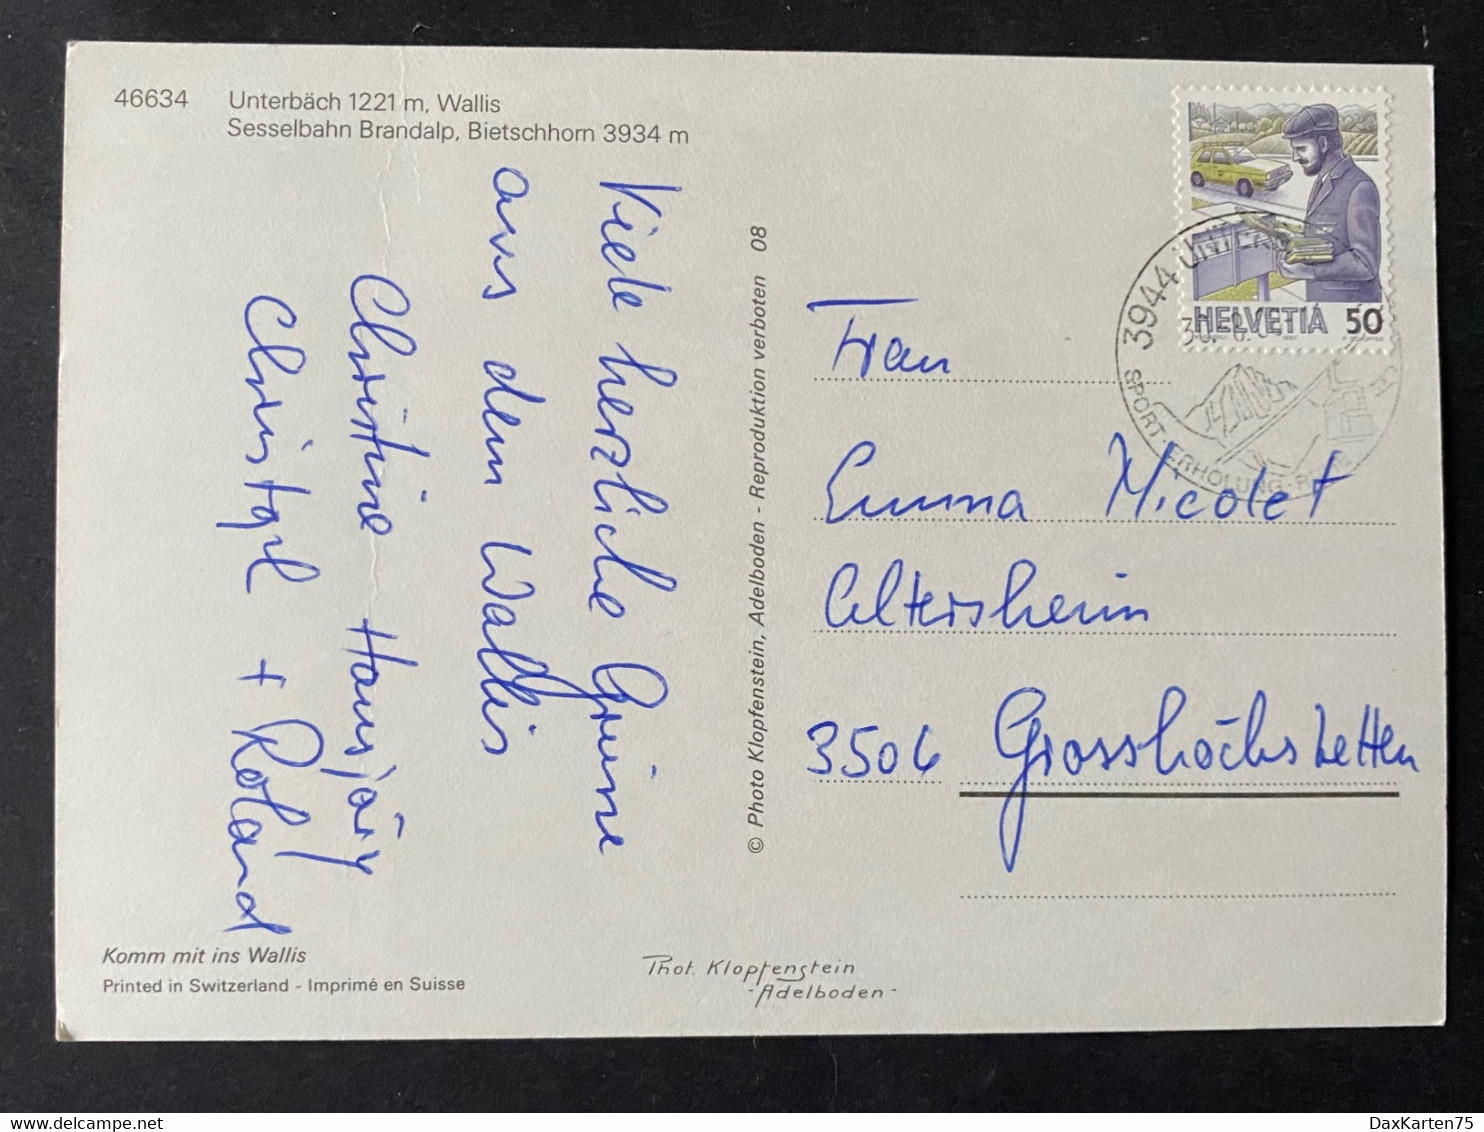 46634 Unterbäch 1221 m, Wallis
Sesselbahn Brandalp, Bietschhorn 3934 m
Viele herzliche Grüsse
aus dem Wallis
Christine Hansjürg
Christqel + Roland
Komm mit ins Wallis
Printed in Switzerland - Imprimé en Suisse
© Photo Klopfenstein, Adelboden - Reproduktion verboten 08
Phot. Klopfenstein
- Adelboden -
HELVETIA 50
3944
SPORT · ERHOLUNG ·
Frau
Emma Nicolet
Altersheim
3506 Grosshöchstetten
DaxKarten75